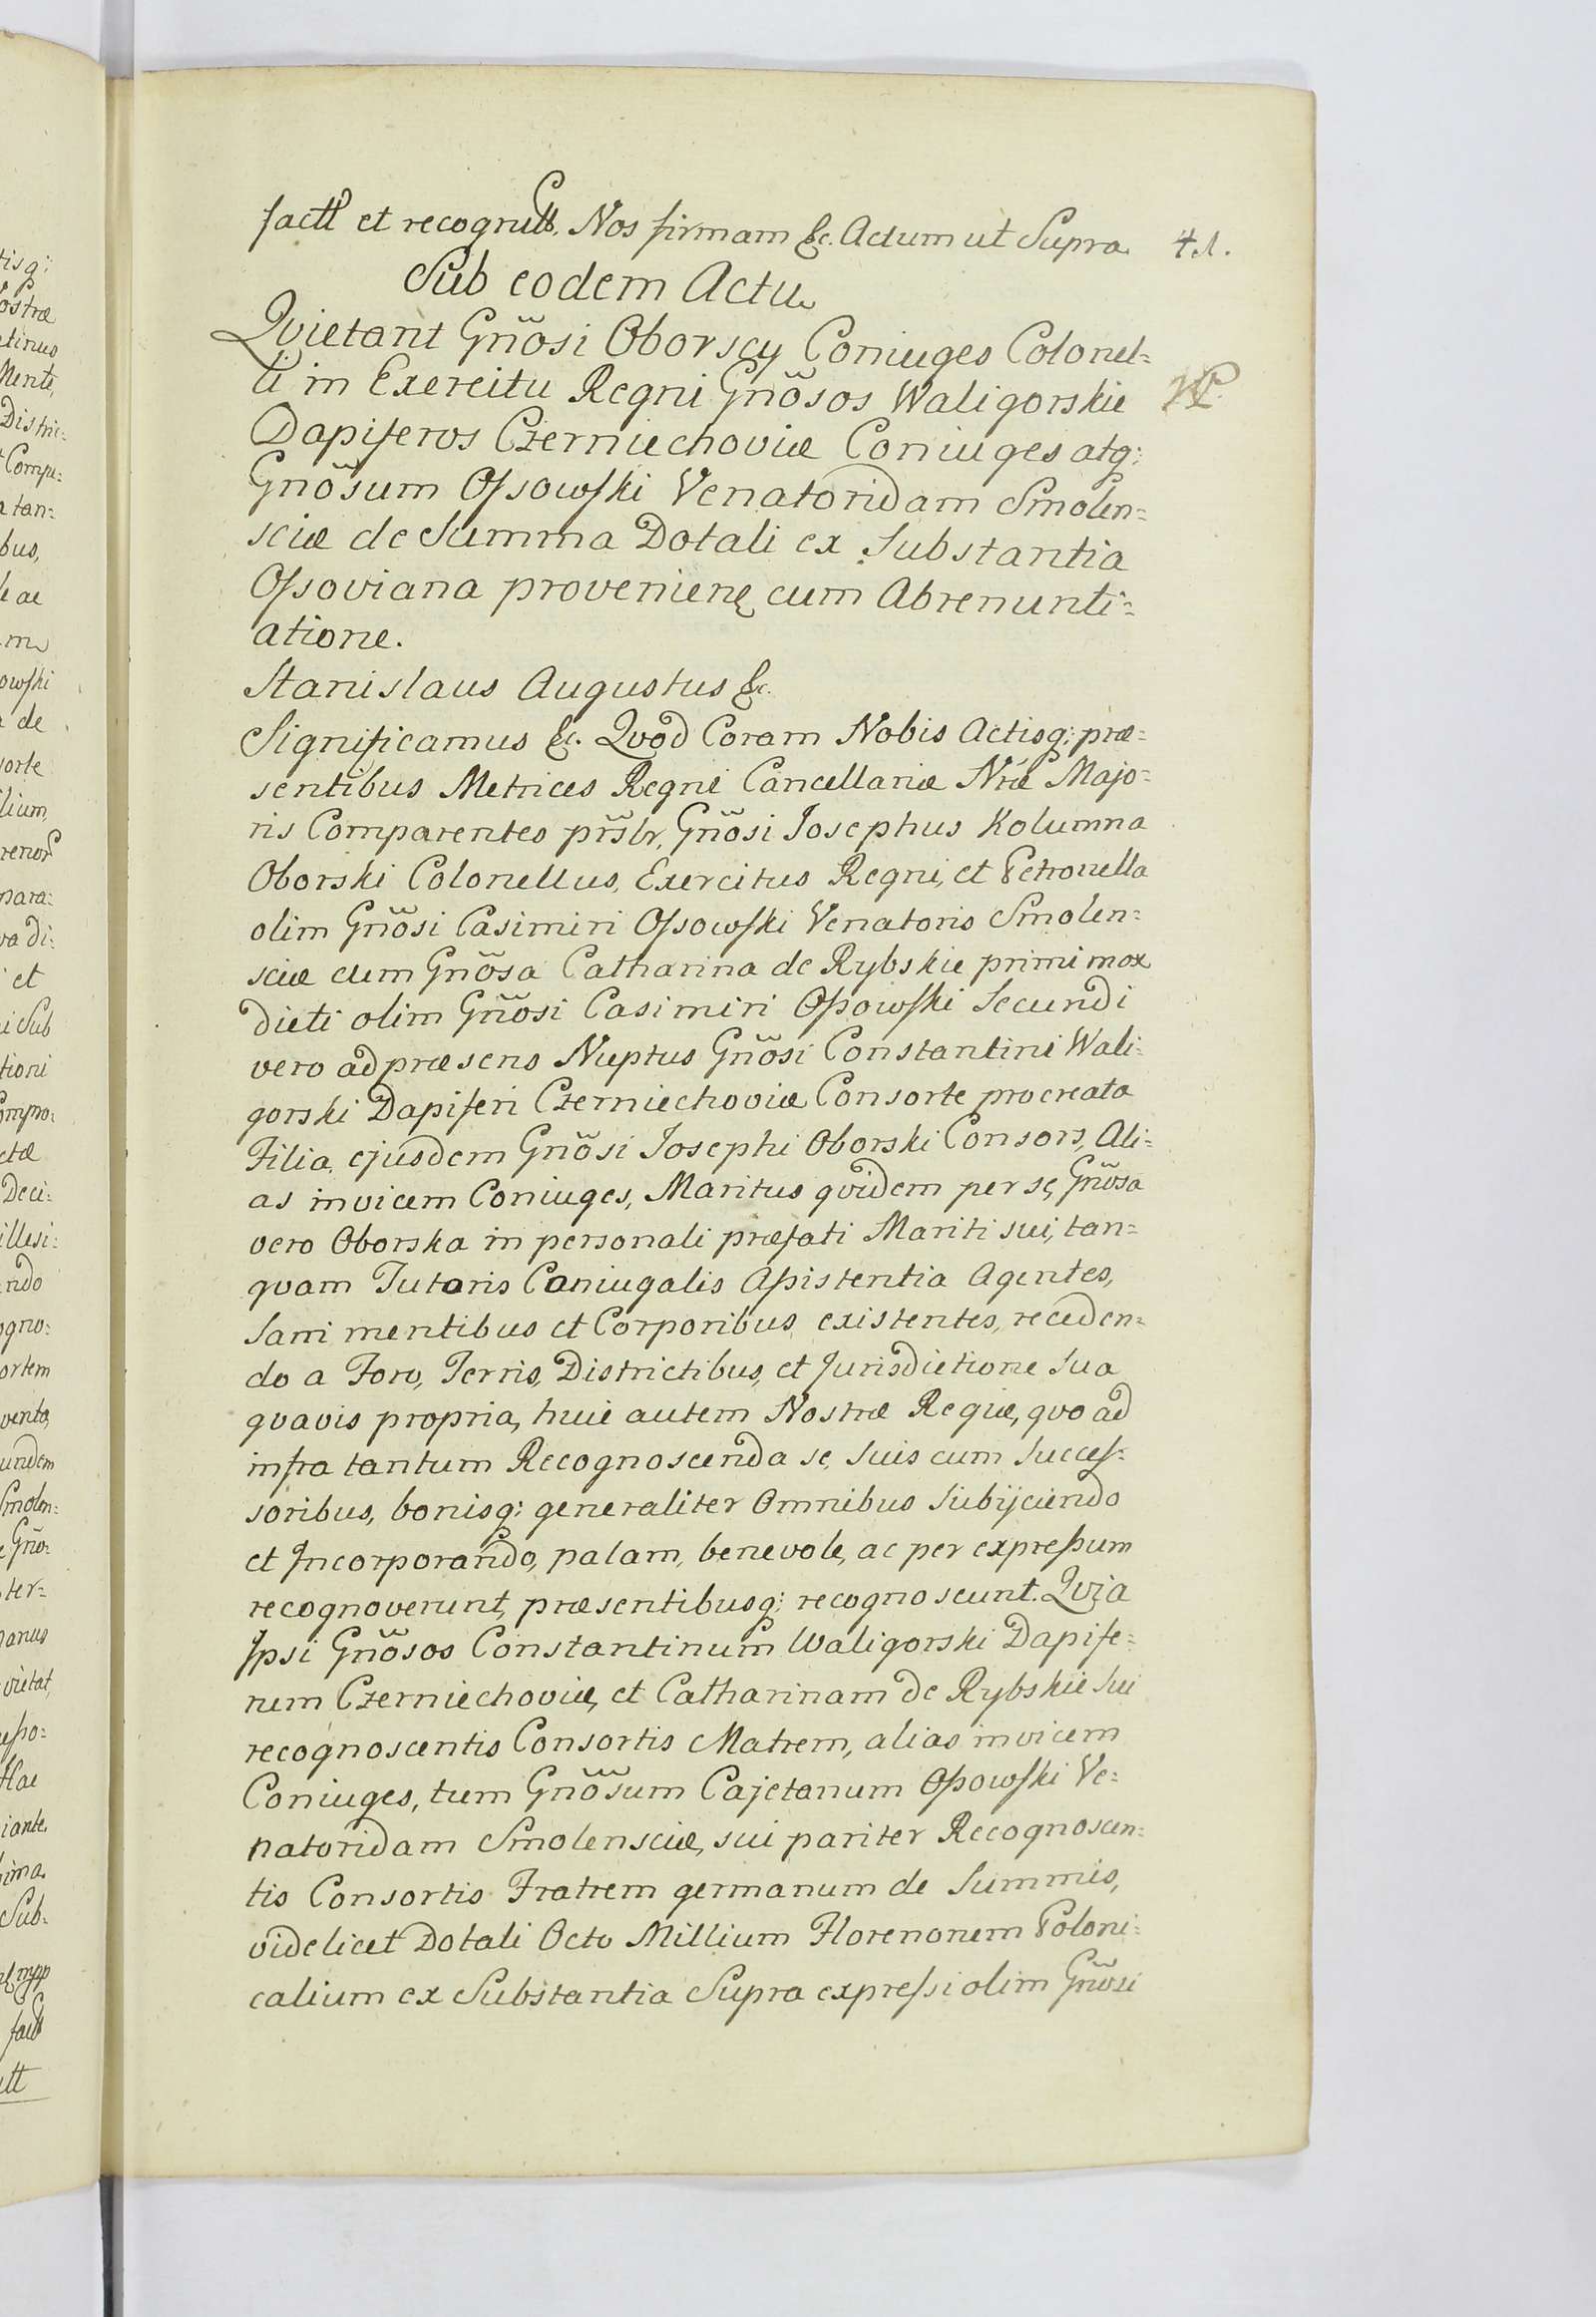 factt et recognitt. Nos firmam &c. Actum ut Supra. 41.
Sub eodem Actu
Qvietant Gñosi Oborscy Coniuges Colonel=
li in Exercitu Regni Gñosos Waligorskie
Dapiferos Czerniechoviæ Coniuges atq:
Gñosum Ossowski Venatoridam Smolen=
sciæ de Summa Dotali ex Substantia
Ossoviana provenien. cum Abrenunti=
atione.
Stanislaus Augustus &c.
Significamus &c. Qvod Coram Nobis Actisq: præ=
sentibus Metrices Regni Cancellariæ Nræ Majo=
ris Comparentes prsлr, Gñosi Josephus Kolumna
Oborski Colonellus, Exercitus Regni, et Petronella
olim Gñosi Casimiri Ossowski Venatoris Smolen=
sciæ cum Gñosa Catharina de Rybskie primi mox
dicti olim Gñosi Casimiri Ossowski Secundi
vero ad præsens Nuptus Gñosi Constantini Wali=
gorski Dapiferi Czerniechoviæ Consorte procreata
Filia, ejusdem Gñosi Josephi Oborski Consors, Ali=
as invicem Coniuges, Maritus qvidem per se, Gñosa
vero Oborska in personali præfati Mariti sui, tan=
qvam Tutoris Coniugalis Assistentia Agentes,
Sani mentibus et Corporibus existentes, receden=
do a Foro, Terris, Districtibus, et Jurisdictione Sua
qvavis propria, huic autem Nostræ Regiæ, qvo ad
infra tantum Recognoscenda se, suis cum Succes=
soribus, bonisq: generaliter Omnibus Subijciendo
et Incorporando, palam, benevole, ac per expressum
recognoverunt, præsentibusq: recognoscunt. Qvia
Ipsi Gñosos Constantinum Waligorski Dapife=
rum Czerniechoviæ, et Catharinam de Rybskie sui
recognoscentis Consortis Matrem, alias invicem
Coniuges, tum Gñosum Cajetanum Ossowski Ve=
natoridam Smolensciæ, sui pariter Recognoscen=
tis Consortis Fratrem germanum de Summis,
videlicet Dotali Octo Millium Florenorum Poloni=
calium ex Substantia Supra expressi olim Gñosi